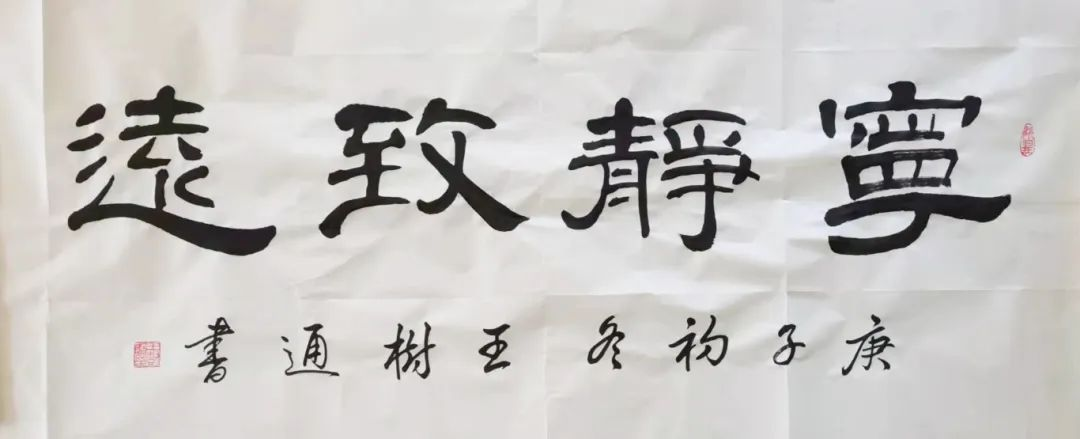 寧靜致遠
庚子初冬王樹通書